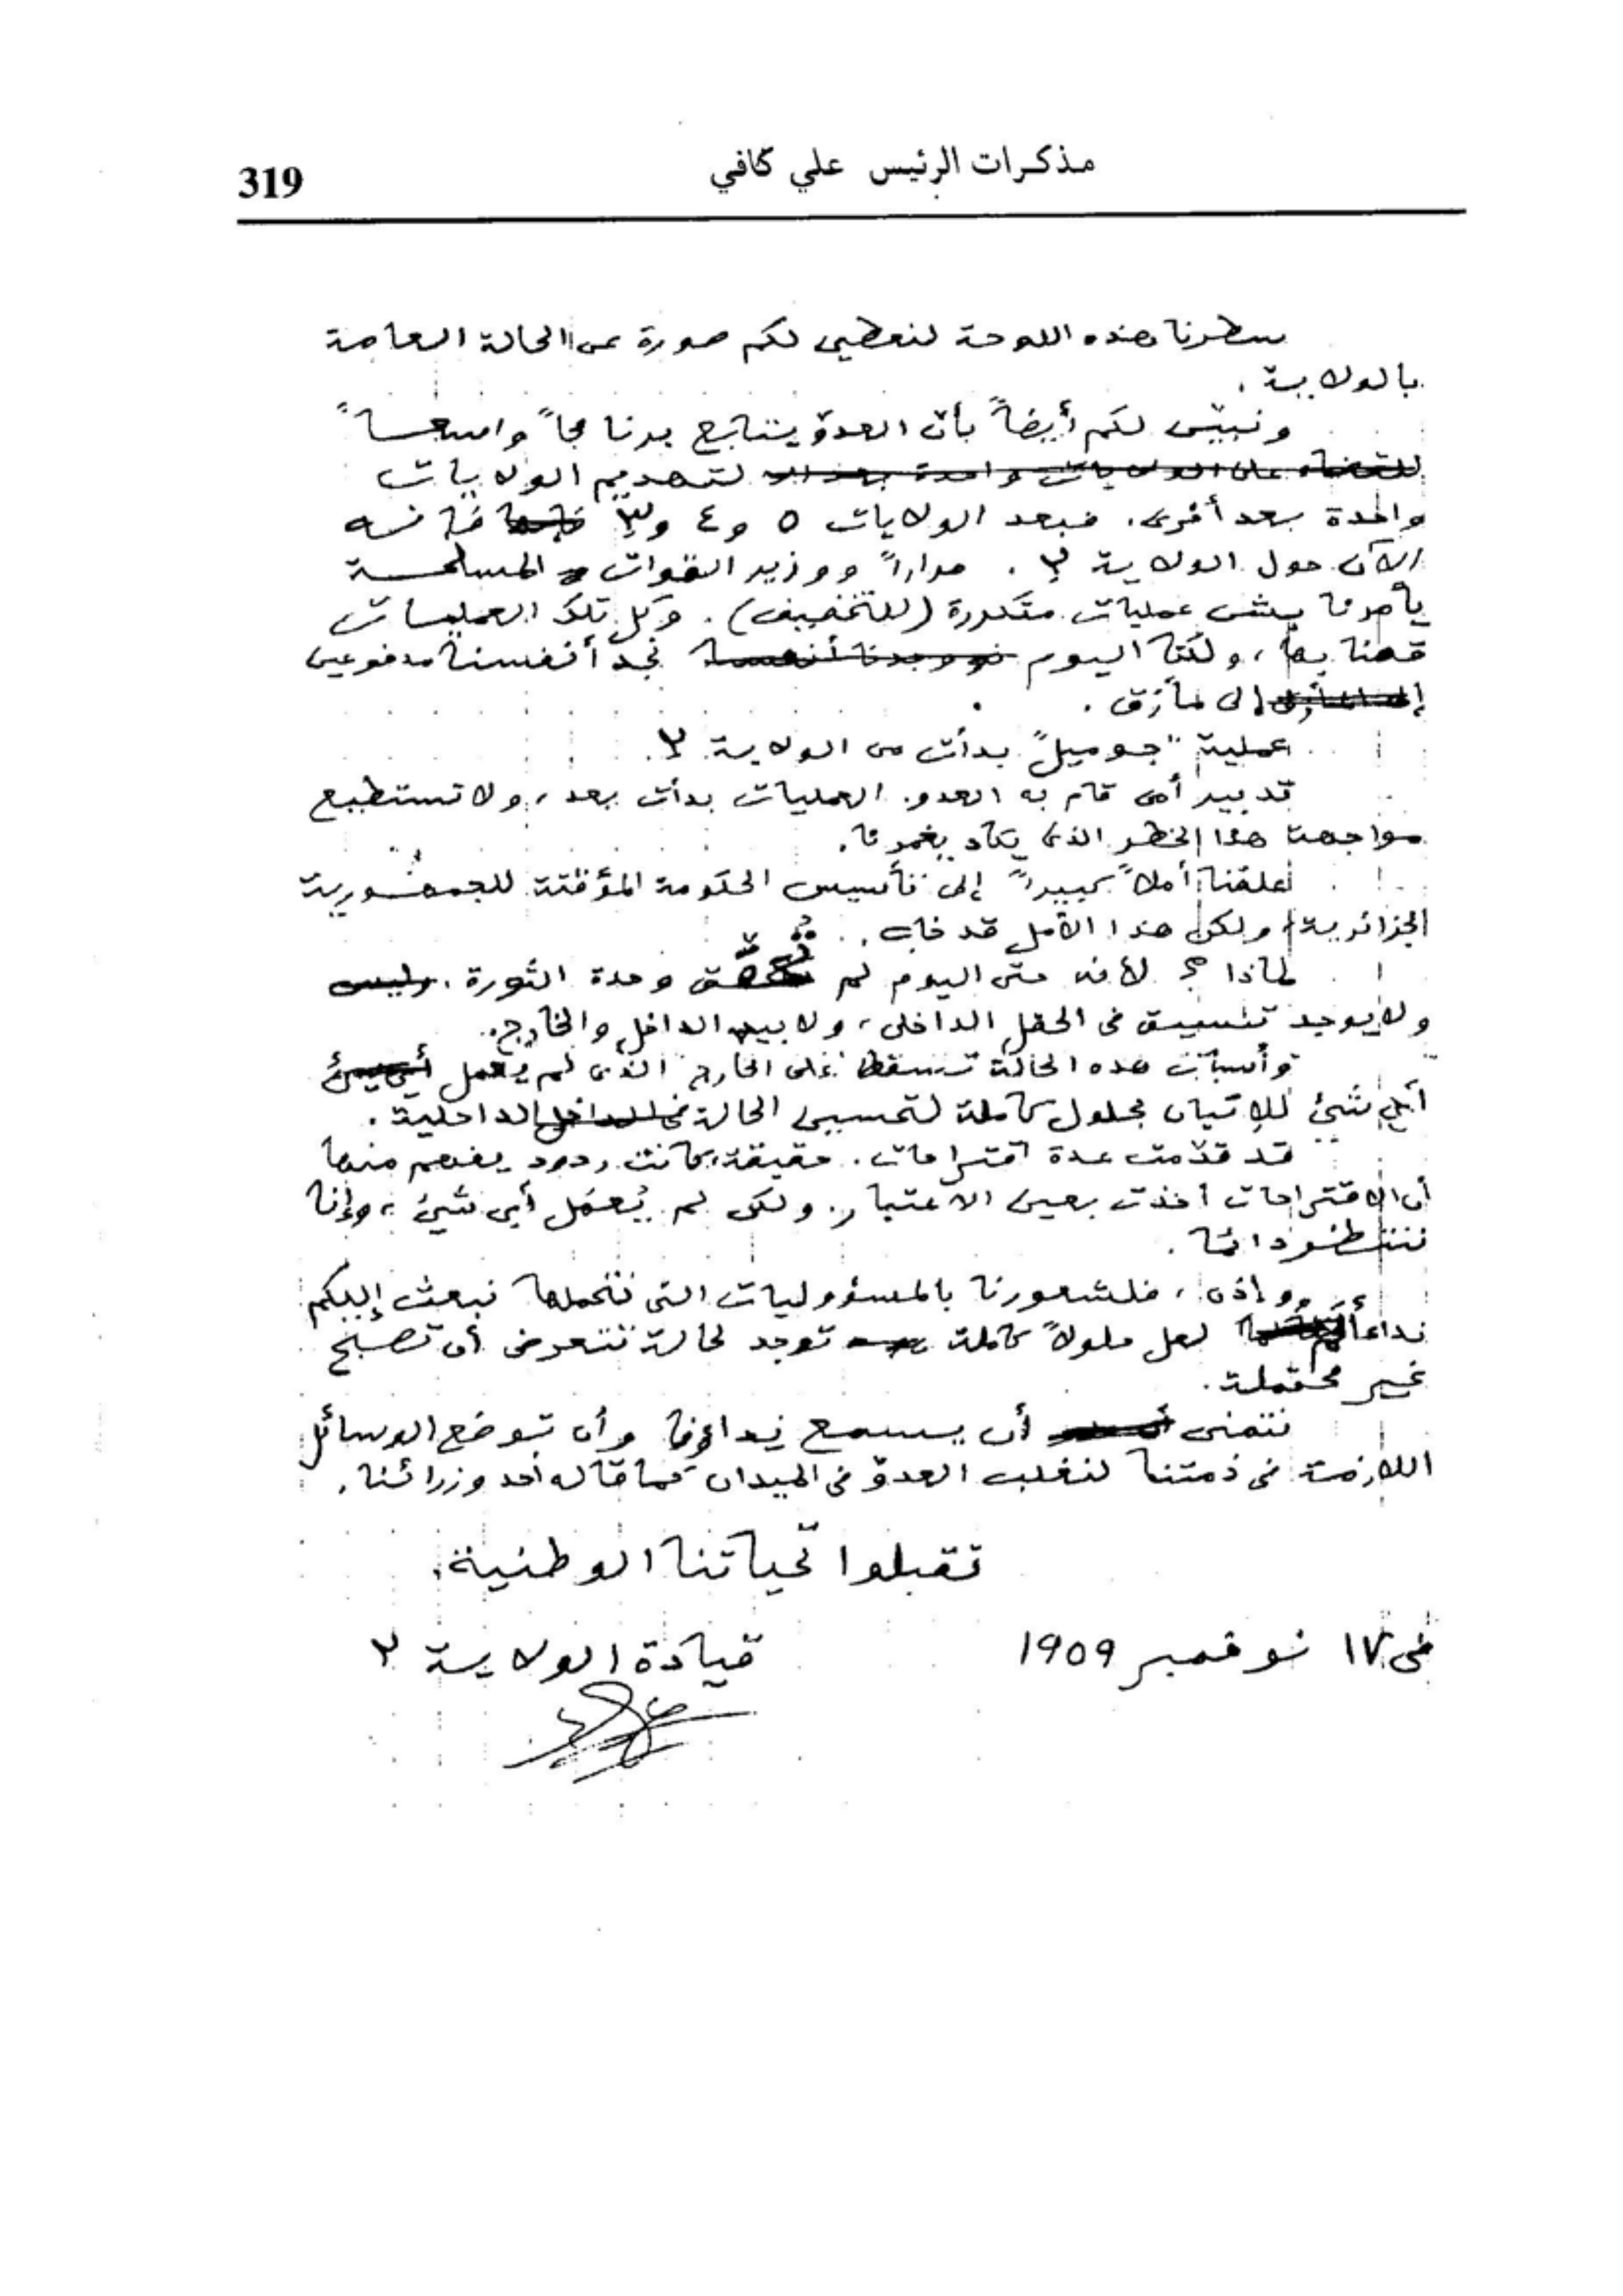 مذكرات الرئيس علي كافي
319
سطرنا هذه اللوحة لنعطي لكم صورة عن الحالة العامة
بالولاية .
ونبيّن لكم أيضاً بأن العدوّ يتابع برنامجاً واسعاً
للقضاء على الولايات واحدة بعد لتهديم الولايات
واحدة بعد أخرى. فبعد الولايات ٥ و٤ و٣ فإنه
الآن حول الولاية ٢ . مراراً ووزير القوات المسلحة
يأمرنا بشن عمليات متكررة (للتخفيف) . وكل تلك العمليات
قمنا بها، ولكن اليوم نجد أنفسنا مدفوعين
إلى مأزق .
عملية "جوميل" بدأت من الولاية ٢.
تدبير أمن قام به العدو. العمليات بدأت بعد، ولا تستطيع
مواجهة هذا الخطر الذي يكاد يغمرنا.
علقنا أملاً كبيراً إلى تأسيس الحكومة المؤقتة للجمهورية
الجزائرية، ولكن هذا الأمل قد خاب .
لماذا؟ لأنه حتى اليوم لم تحقق وحدة الثورة. وليس
ولا يوجد تنسيق في الحقل الداخلي، ولا بين الداخل والخارج.
وأسباب هذه الحالة تسقط على الخارج الذي لم يعمل
أي شيئ للإتيان بحلول كاملة لتحسين الحالة الداخلية .
قد قدّمت عدة اقتراحات. حقيقة، كانت ردود يفهم منها
أن الاقتراحات أخذت بعين الاعتبار. ولكن لم يُعمَل أي شيئ، وإنا
ننتظر دائما .
وإذن، فلشعورنا بالمسؤوليات التي نتحملها نبعث إليكم
نداءاً لعل حلولاً كاملة توجد لحالة تتعرض أن تصبح
غير محتملة.
نتمنى أن يسمع نداؤنا وأن توضع الوسائل
اللازمة في ذمتنا لنغلب العدوّ في الميدان كما قاله أحد وزرائنا.
تقبلوا تحياتنا الوطنية.
في ١٧ نوفمبر ١٩٥٩
قيادة الولاية ٢